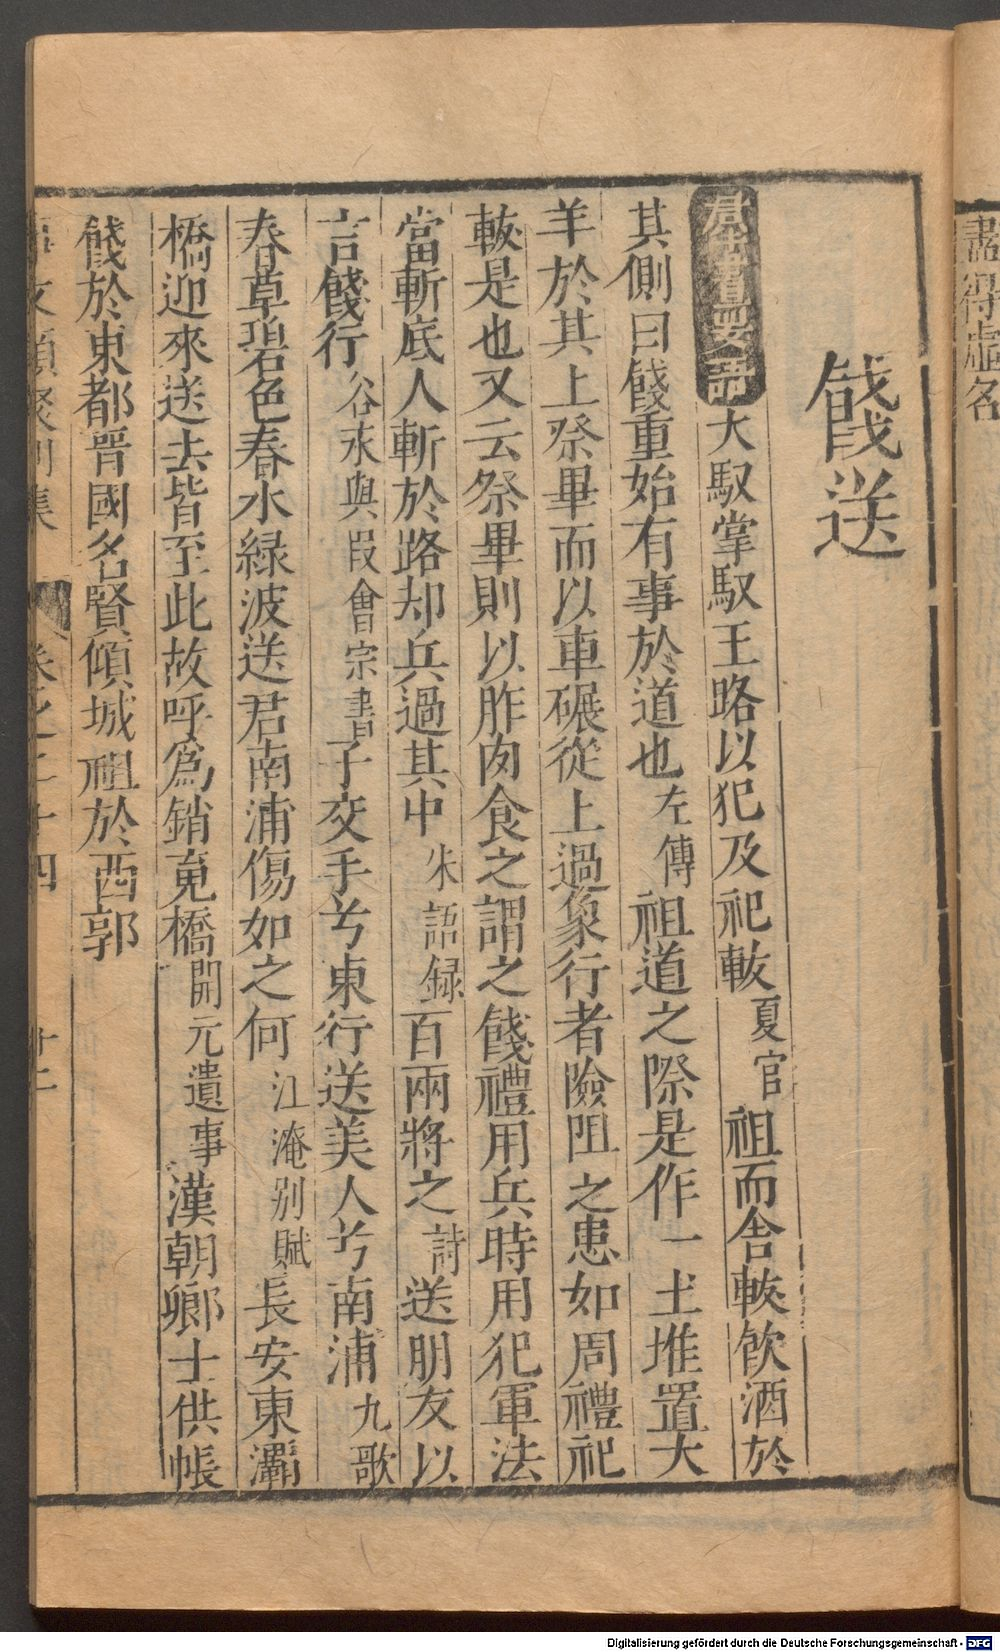 盡得虛名
餞送
羣書要語大馭掌馭王路以犯及祀軷夏官祖而舍軷飲酒於
其側曰餞重始有事於道也左傳祖道之際是作一土堆置大
羊於其上祭畢而以車碾從上過象行者險阻之患如周禮祀
軷是也又云祭畢則以胙肉食之謂之餞禮用兵時用犯軍法
當斬底人斬於路却兵過其中朱語録百兩將之詩送朋友以
言餞行谷永與段會宗書子交手兮東行送美人兮南浦九歌
春草碧色春水緑波送君南浦傷如之何江淹别賦長安東灞
橋迎來送去皆至此故呼爲銷䰟橋開元遺事漢朝卿士供帳
餞於東都晋國名賢傾城祖於西郭
事文類聚别集 卷之二十四 廿二
Digitalisierung gefördert durch die Deutsche Forschungsgemeinschaft - DFG